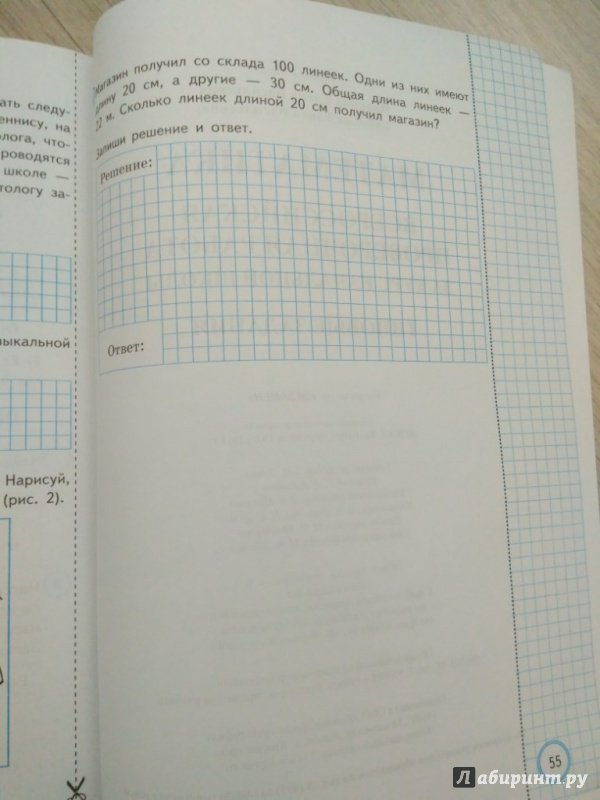 ать следу-
еннису, на
олога, что-
роводятся
школе —
тологу за-
зыкальной
Нарисуй,
(рис. 2).
Магазин получил со склада 100 линеек. Одни из них имеют
длину 20 см, а другие — 30 см. Общая длина линеек —
22 м. Сколько линеек длиной 20 см получил магазин?
Запиши решение и ответ.
Решение:
Ответ:
55
Лабиринт.ру